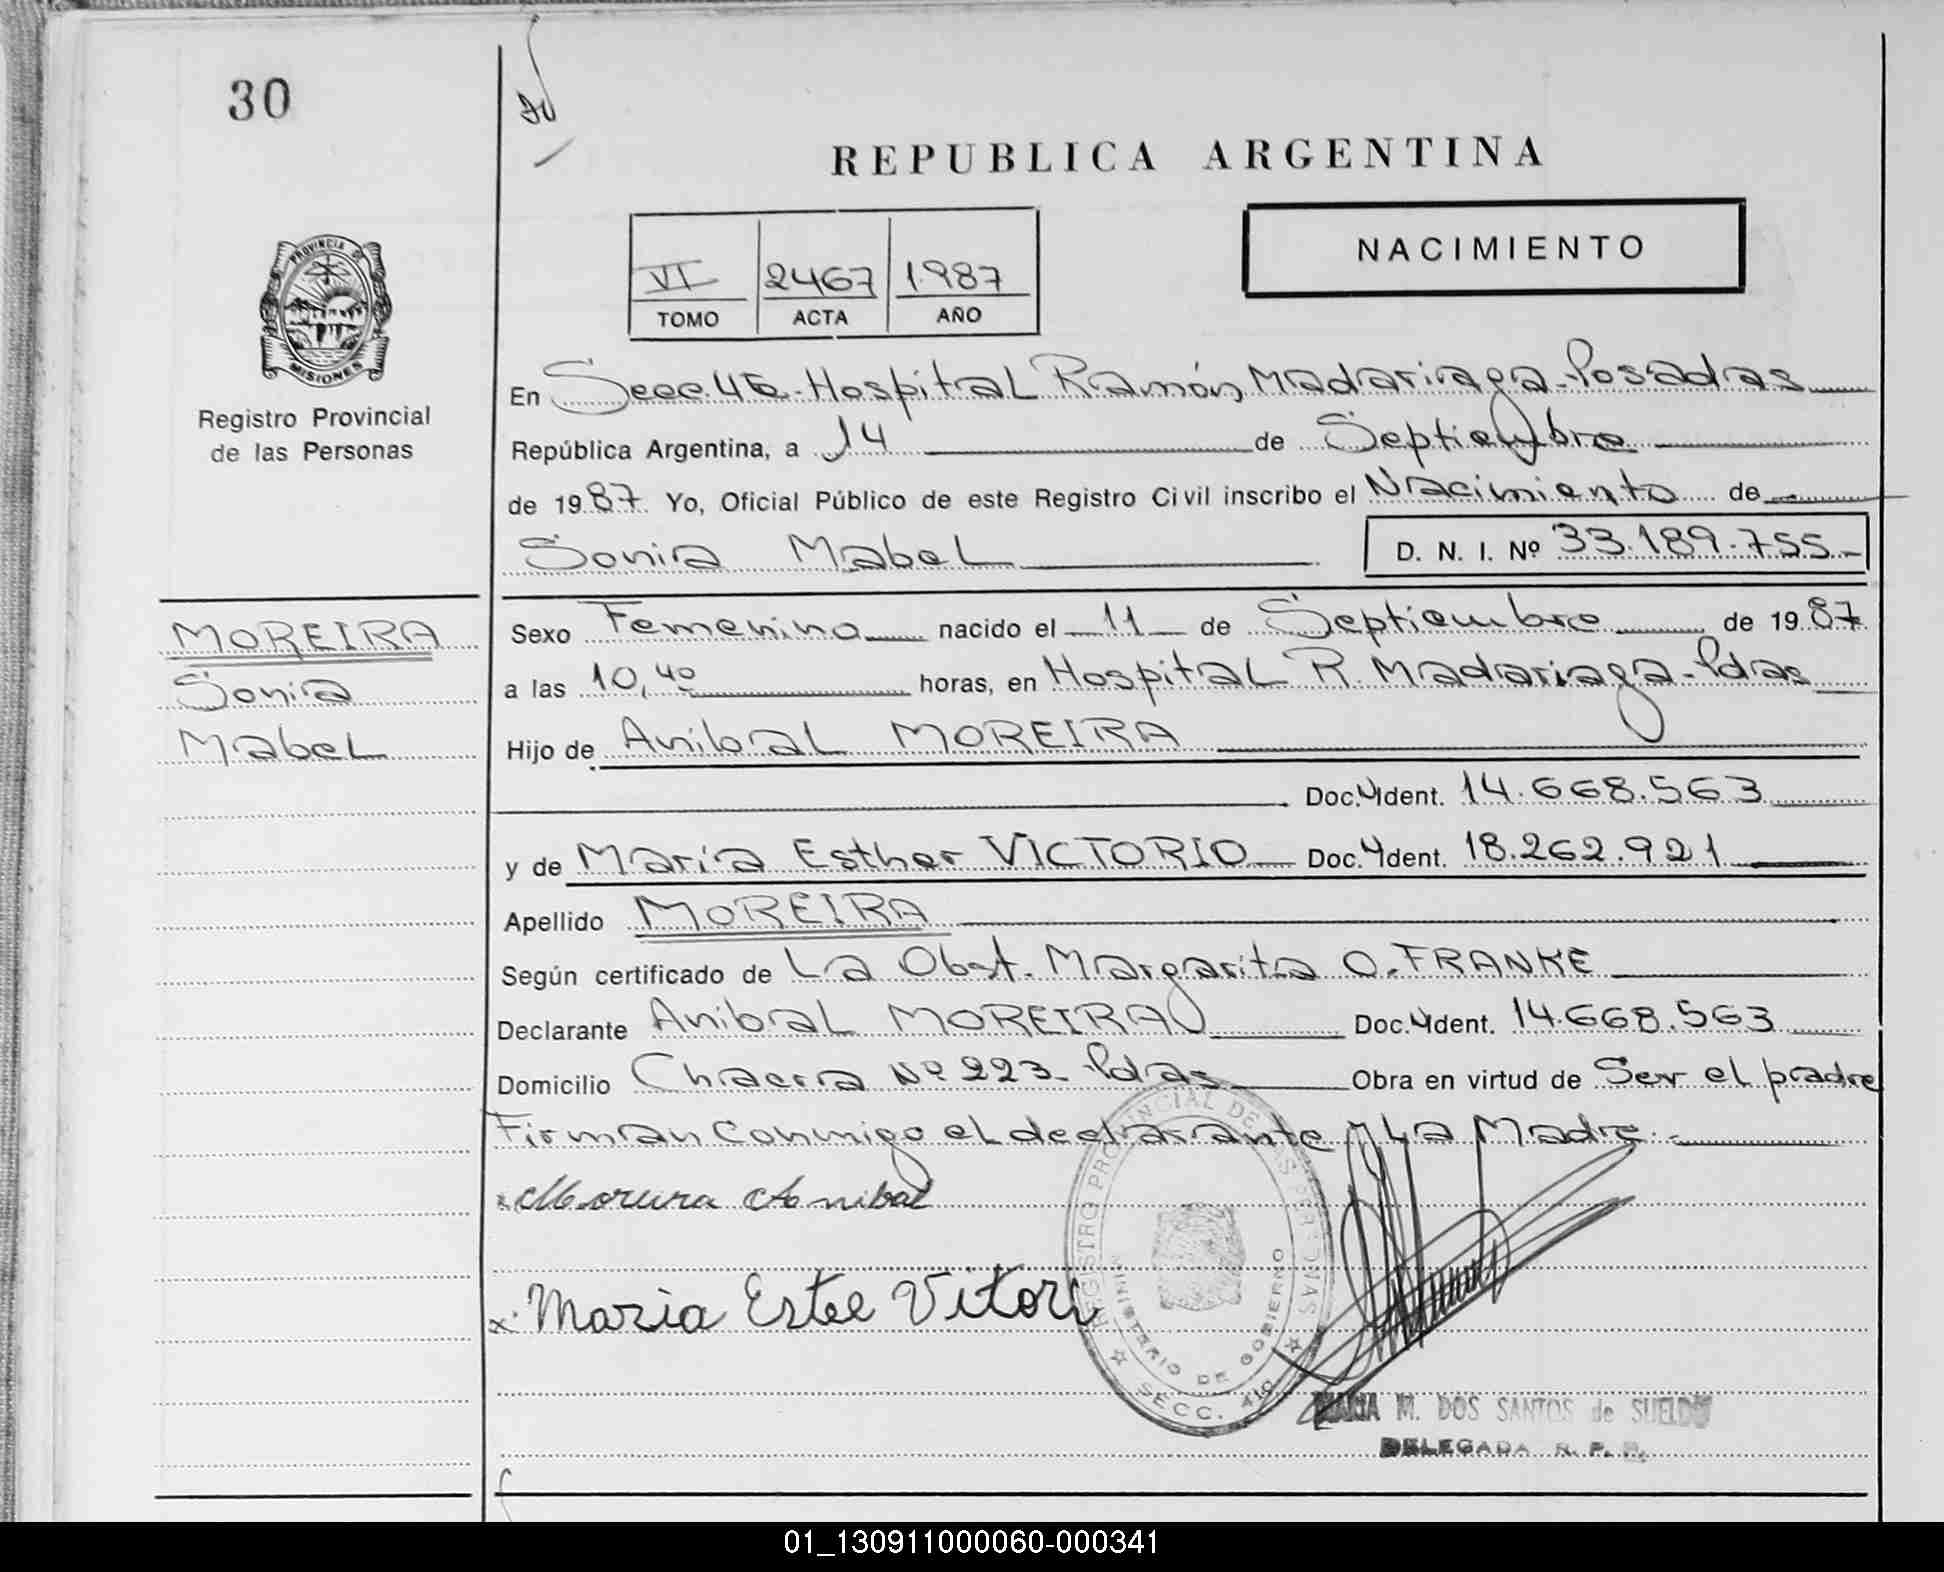 30
REPUBLICA ARGENTINA
NACIMIENTO
VI 2467 1.987
TOMO ACTA AÑO
PROVINCIA DE MISIONES
Registro Provincial
de las Personas
En Secc. 4ta. Hospital Ramón Madariaga - Posadas
República Argentina, a 14 de Septiembre
de 1987. Yo, Oficial Público de este Registro Civil inscribo el Nacimiento de
Sonia Mabel D. N. I. Nº 33.189.755.-
MOREIRA
Sonia
Mabel
Sexo Femenino nacido el 11 de Septiembre de 1987
a las 10,40 horas, en Hospital R. Madariaga - Pdas
Hijo de Anibal MOREIRA
Doc. Ident. 14.668.563
y de María Esther VICTORIO Doc. Ident. 18.262.921
Apellido MOREIRA
Según certificado de La Obst. Margarita O. FRANKE
Declarante Anibal MOREIRA Doc. Ident. 14.668.563
Domicilio Chacra Nº 223 - Pdas Obra en virtud de Ser el padre
Firman conmigo el declarante y La Madre.
Moreira Anibal
x. Maria Estee Vitori
REGISTRO PROVINCIAL DE LAS PERSONAS
MINISTERIO DE GOBIERNO
SECC. 4ta
MARIA M. DOS SANTOS de SUELDO
DELEGADA R. P. P.
01_130911000060-000341